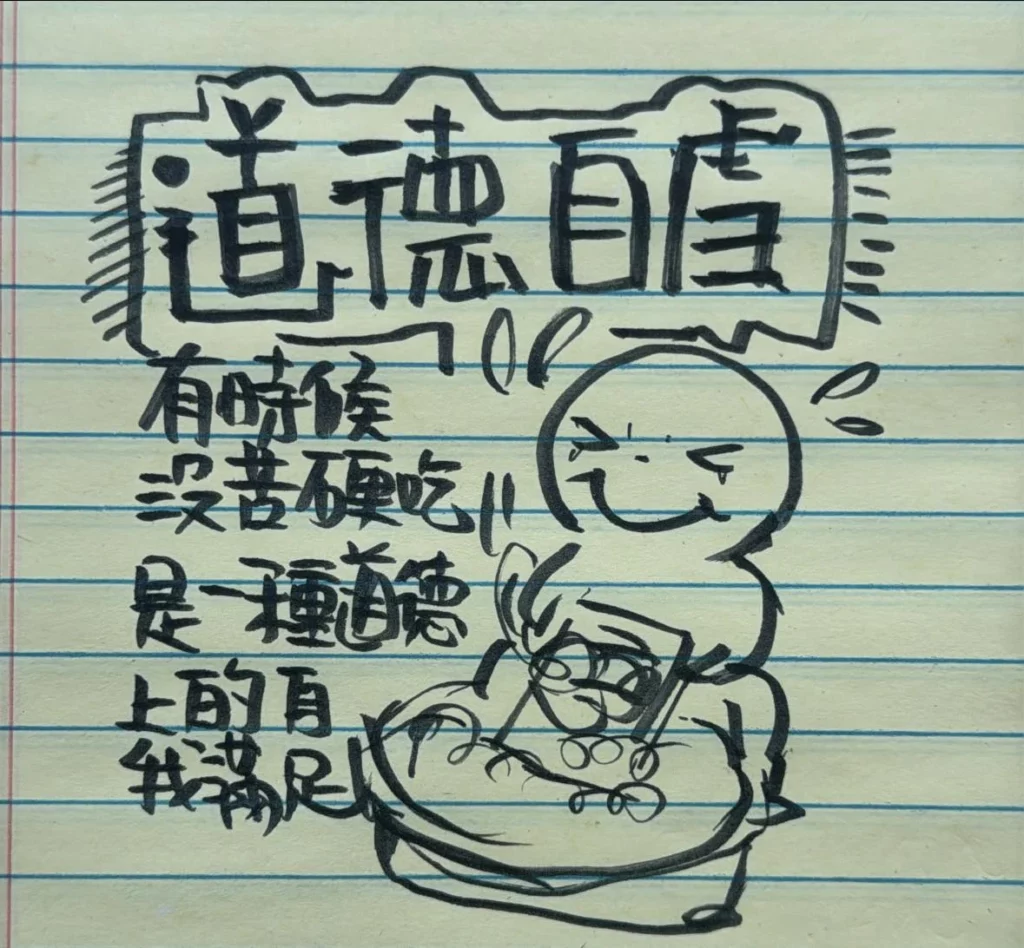 道德自虐
有時候
沒苦硬吃
是一種道德
上的自
我滿足